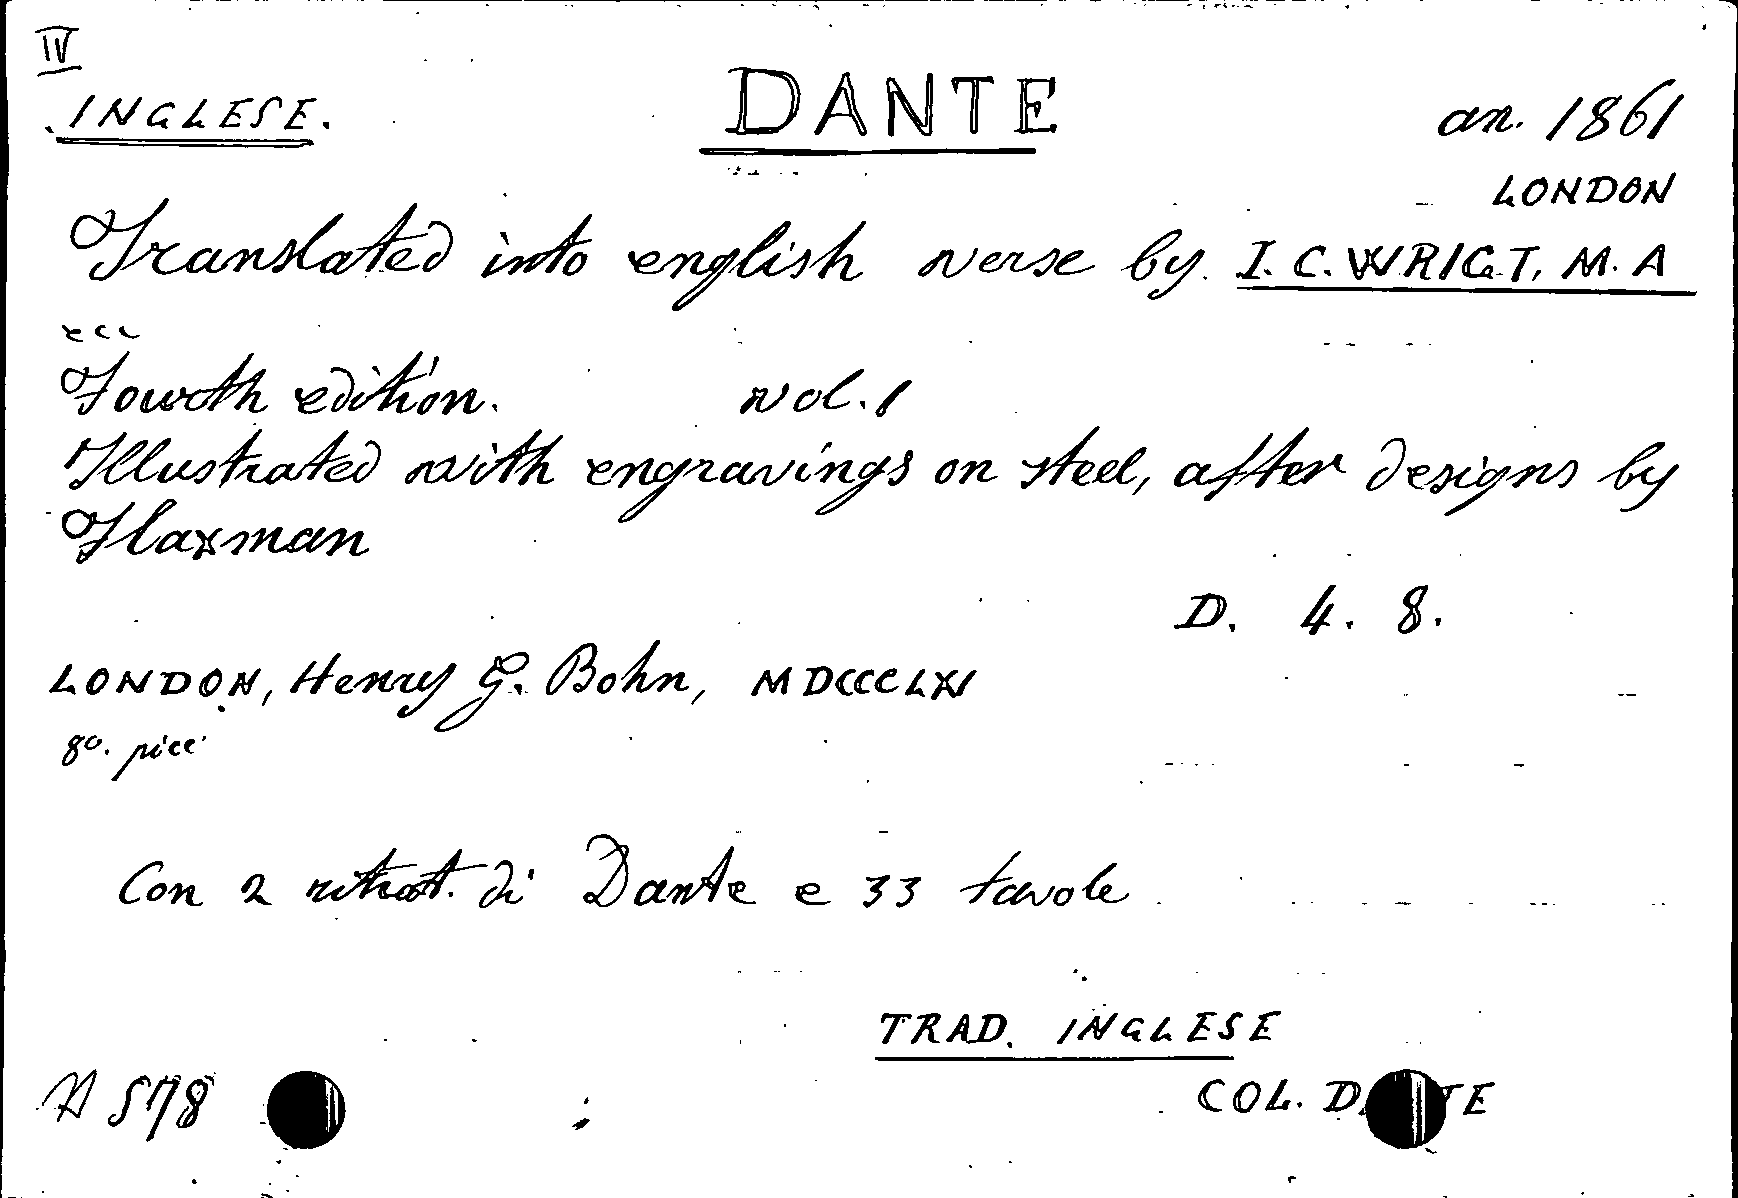 IV
INGLESE.
DANTE
an. 1861
LONDON
Translated into english verse by I. C. WRIGT, M. A
ecc
Fourth edition. vol. 1
Illustrated with engravings on steel, after designs by
Flaxman
D. 4. 8.
LONDON, Henry G. Bohn, MDCCCLXI
8º. picc
Con 2 ritrat. di Dante e 33 tavole
TRAD. INGLESE
578
COL.